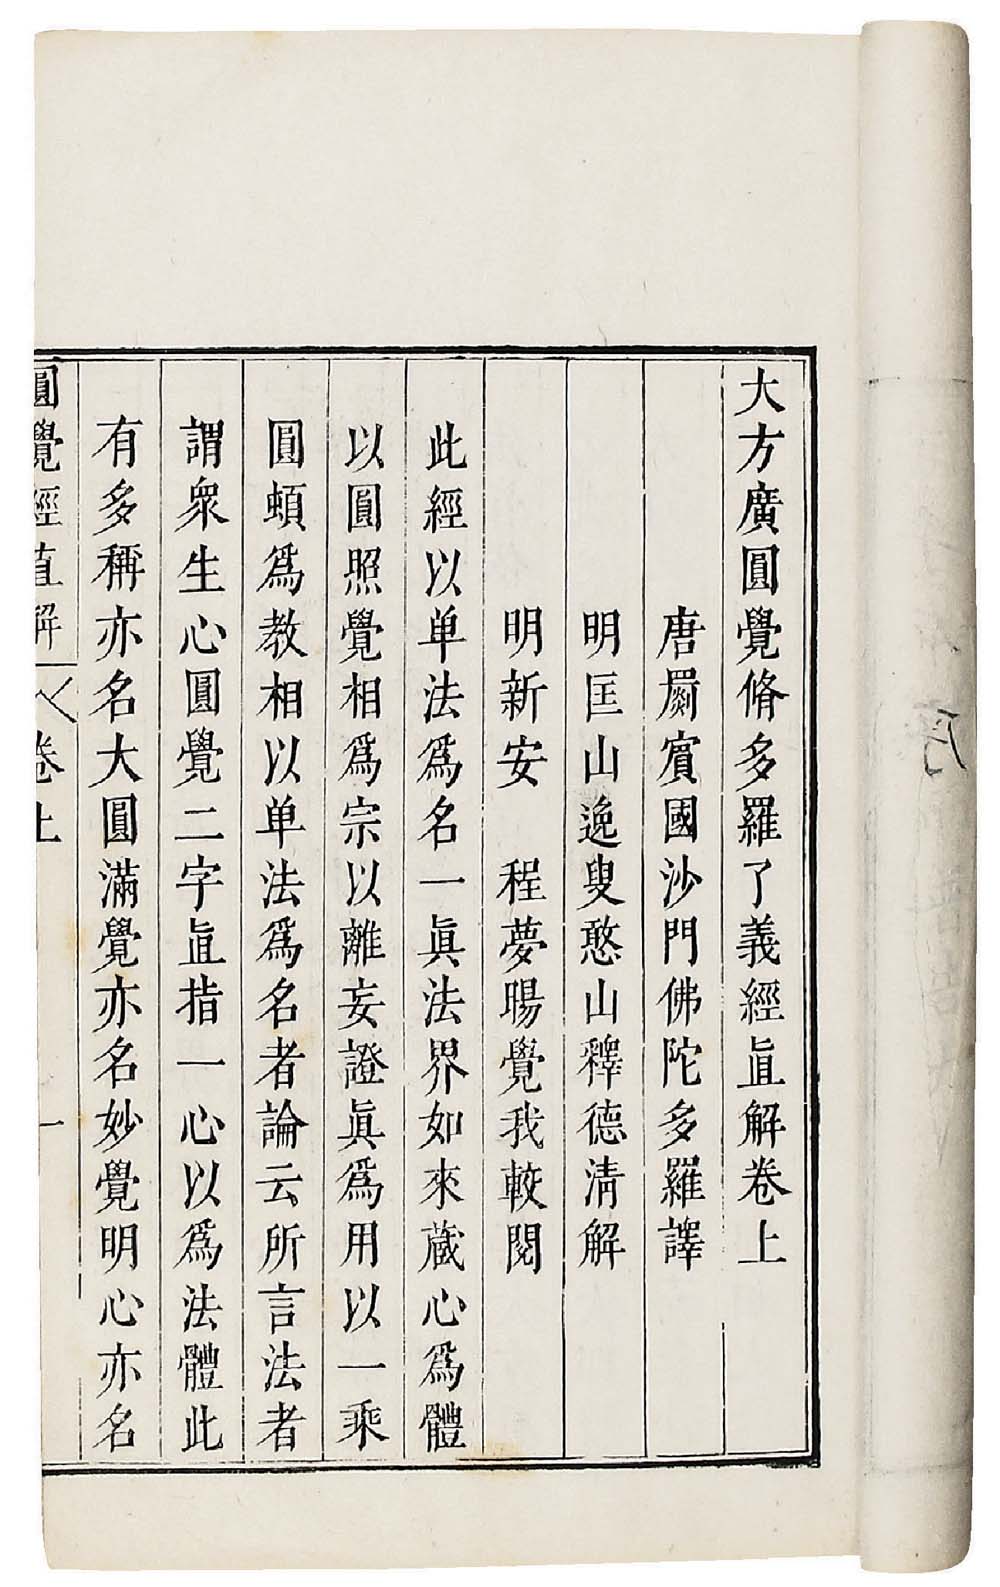 大方廣圓覺脩多羅了義經直解卷上
唐罽賓國沙門佛陀多羅譯
明匡山逸叟憨山釋德清解
明新安　程夢暘覺我較閱
此經以单法爲名一眞法界如來蔵心爲體
以圓照覺相爲宗以離妄證眞爲用以一乘
圓頓爲教相以单法爲名者論云所言法者
謂衆生心圓覺二字直指一心以爲法體此
有多稱亦名大圓滿覺亦名妙覺明心亦名
圓覺經直解 卷上 一